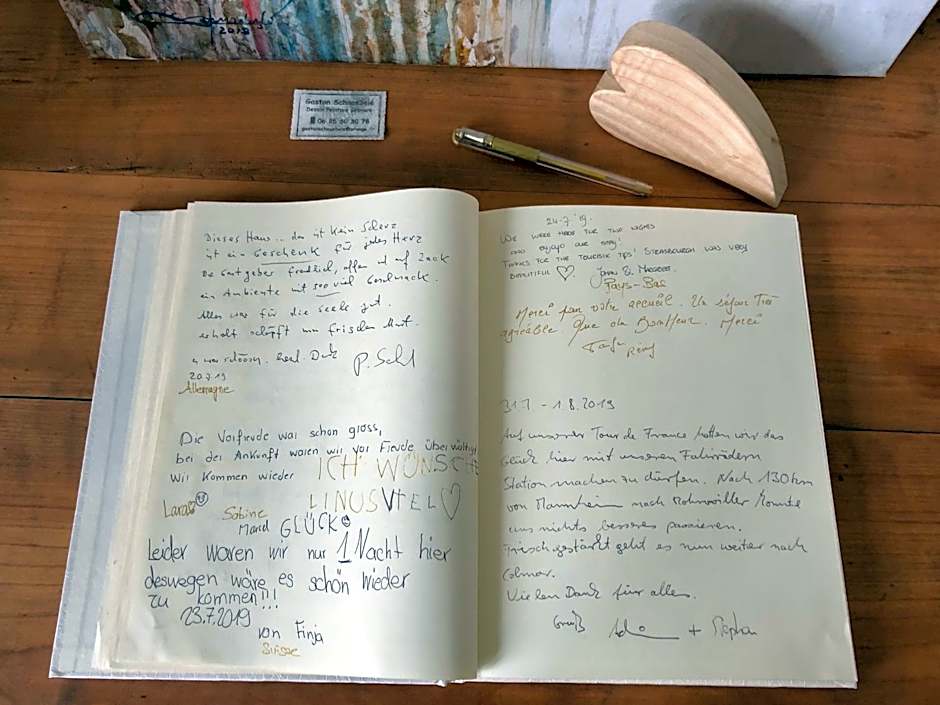 2019
Gaston
Dessin Peinture
06 25 60 30 76
Dieses Haus... das ist kein Scherz
ist ein Geschenk für jedes Herz
Die Gastgeber freundlich, offen und auf Zack
ein Ambiente mit soo viel Geschmack.
Alles war für die Seele gut.
erholt schöpft man frischen Mut.
es war schön. Herzl. Dank
20.7.19
Allemagne
Die Vorfreude war schon gross,
bei der Ankunft waren wir vor Freude überwältigt
Wir kommen wieder
ICH WÜNSCHE
LINUS VIEL
GLÜCK
Lara
Sabine
Leider waren wir nur 1 Nacht hier
deswegen wäre es schön wieder
zu kommen!!!
23.7.2019
von Finja
Suisse
24.7.'19.
We were here for two nights
and enjoyed our stay!
Thanks for the touristic tips! Strasbourgh was very
beautiful
Pays-Bas
Merci pour votre accueil. Un séjour Très
agréable Que du Bonheur. Merci
Rémy
31.7. - 1.8.2019
Auf unserer Tour de France hatten wir das
Glück hier mit unseren Fahrrädern
Station machen zu dürfen. Nach 130 km
von Mannheim nach Rohrwiller konnte
uns nichts besseres passieren.
Frisch gestärkt geht es nun weiter nach
Colmar.
Vielen Dank für alles.
Gruß
+ Stephan